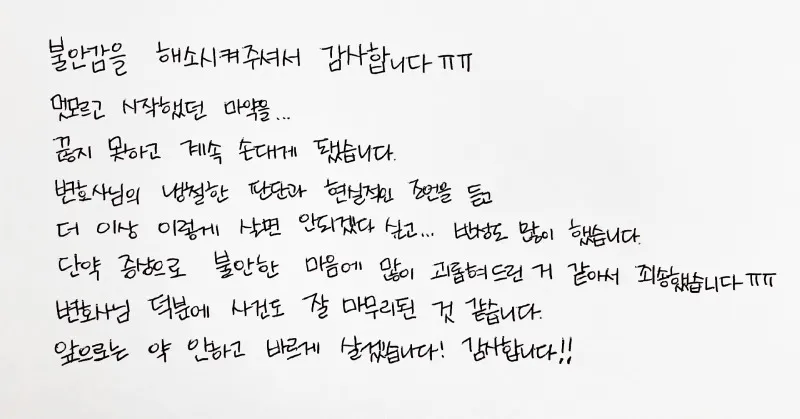 불안감을 해소시켜주셔서 감사합니다ㅠㅠ
멋모르고 시작했던 마약을...
끊지 못하고 계속 손대게 됐습니다.
변호사님의 냉철한 판단과 현실적인 조언을 듣고
더 이상 이렇게 살면 안되겠다 싶고... 반성도 많이 했습니다.
단약 증상으로 불안한 마음에 많이 괴롭혀드린 거 같아서 죄송했습니다ㅠㅠ
변호사님 덕분에 사건도 잘 마무리된 것 같습니다.
앞으로는 약 안하고 바르게 살겠습니다! 감사합니다!!